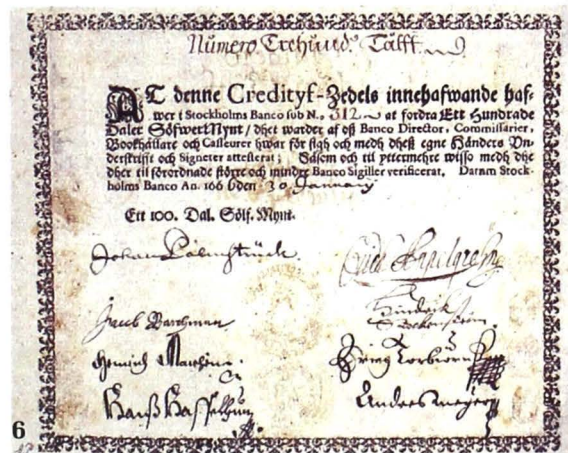 Numero Trehund. Tålff
AT denne Credityf-Zedels innehafwande haf-
wer i Stockholms Banco sub N. 312. at fordra Ett Hundrade
Daler SölfwerMynt / dhet warder af oß Banco Director, Commissarier,
Bookhållare och Casseurer hwar för sigh och medh dheß egne Händers Vn-
derskrifft och Signeter attesterat; Såsom och til yttermehre wisso medh dhe
dher til förordnade större och mindre Banco Sigiller verificerat. Datum Stock-
holms Banco An. 166 6 den 30 January
Ett 100. Dal. Sölf. Mynt.
Johan Palmstruck
Jacob Barchman
Hindrik
Hans
Anders Meyer
6